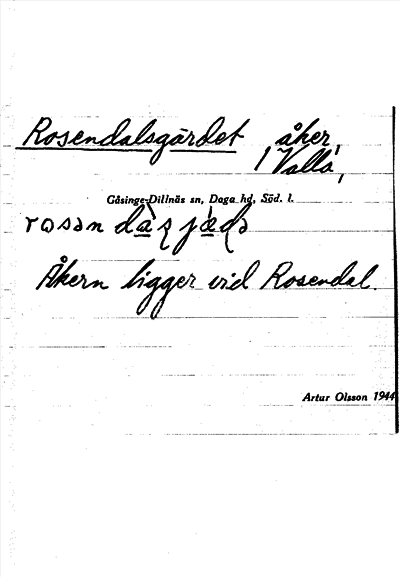 Rosendalsgärdet åker,
/ Valla,
Gåsinge-Dillnäs sn, Daga hd, Söd. l.
Åkern ligger vid Rosendal.
Artur Olsson 1944